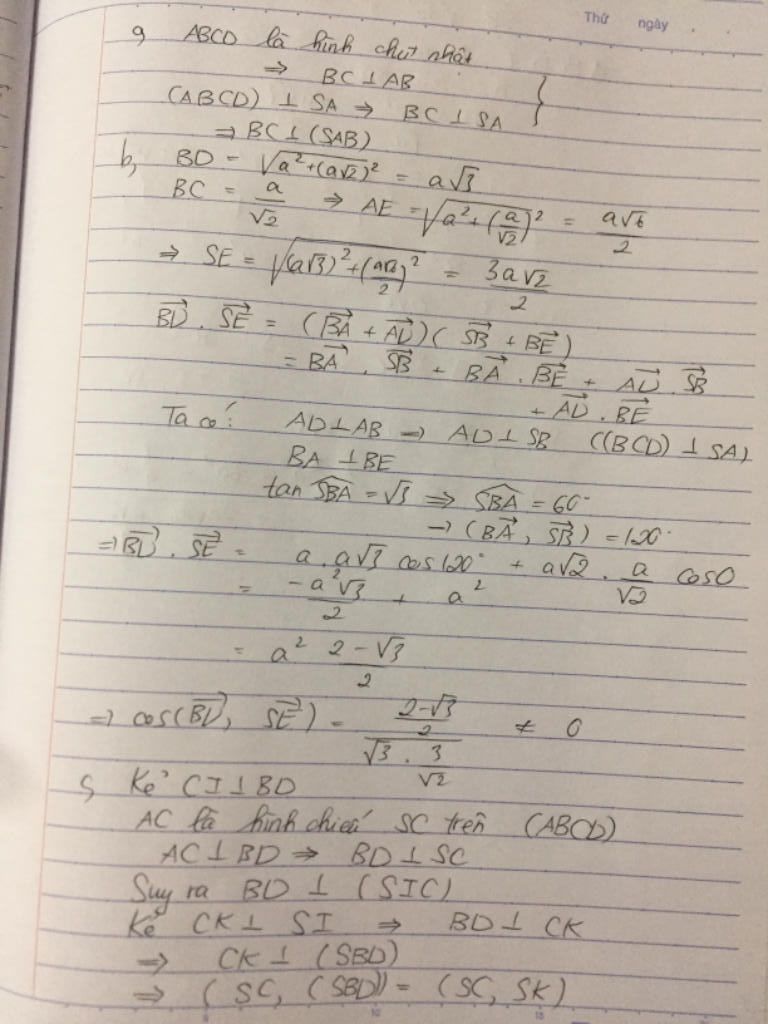 Thứ ngày
a, ABCD là hình chữ nhật
⇒ BC ⊥ AB
(ABCD) ⊥ SA ⇒ BC ⊥ SA }
⇒ BC ⊥ (SAB)
b, BD = √(a² + (a√2)²) = a√3
BC = a/√2 ⇒ AE = √(a² + (a/√2)²) = a√6/2
⇒ SE = √((a√3)² + (a√6/2)²) = 3a√2/2
BD→ . SE→ = (BA→ + AD→)( SB→ + BE→)
= BA→ . SB→ + BA→ . BE→ + AD→ . SB→
+ AD→ . BE→
Ta có: AD ⊥ AB → AD ⊥ SB ((BCD) ⊥ SA)
BA ⊥ BE
tan SBA = √3 ⇒ SBA = 60°
→ (BA→, SB→) = 120°
⇒ BD→ . SE→ = a . a√3 cos120° + a√2 . a/√2 cos0
= -a²√3/2 + a²
= a² (2 - √3)/2
⇒ cos(BD→, SE→) = ((2-√3)/2)/(√3 . 3/√2) ≠ 0
c, Kẻ CI ⊥ BD
AC là hình chiếu SC trên (ABCD)
AC ⊥ BD ⇒ BD ⊥ SC
Suy ra BD ⊥ (SIC)
Kẻ CK ⊥ SI ⇒ BD ⊥ CK
⇒ CK ⊥ (SBD)
⇒ (SC, (SBD)) = (SC, SK)